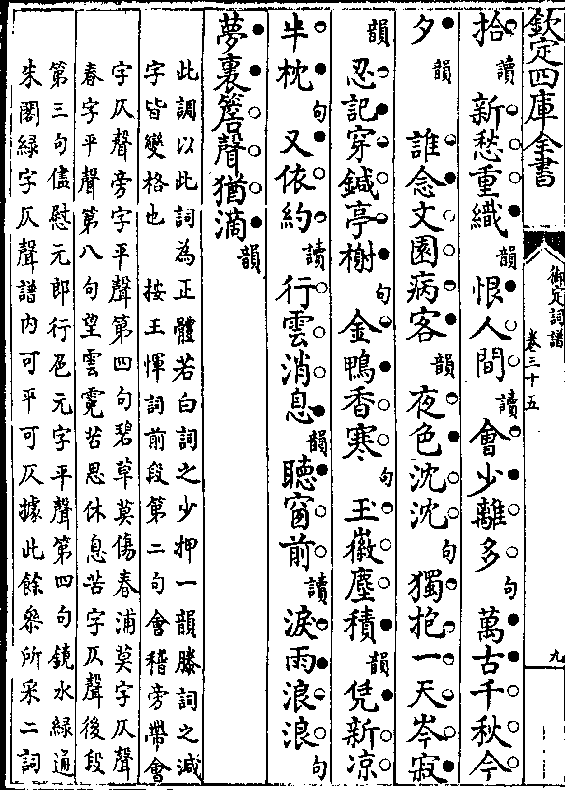 欽定四庫全書
御定詞譜
卷三十五
九
拾讀新愁重織韻恨人間讀會少離多句萬古千秋今
夕韻誰念文園病客韻夜色沈沈句獨抱一天岑寂
韻忍記穿鍼亭榭句金鴨香寒句玉徽塵積韻凭新凉
半枕句又依約讀行雲消息韻聽窗前讀淚雨浪浪句
夢裏簷聲猶滴韻
此調以此詞為正體若白詞之少押一韻滕詞之減
字皆變格也 按王惲詞前段第二句會稽旁帶會
字仄聲旁字平聲第四句碧草莫傷春浦莫字仄聲
春字平聲第八句望雲霓苦思休息苦字仄聲後段
第三句儘慰元郎行色元字平聲第四句鏡水綠通
朱閣綠字仄聲譜内可平可仄據此餘叅所采二詞